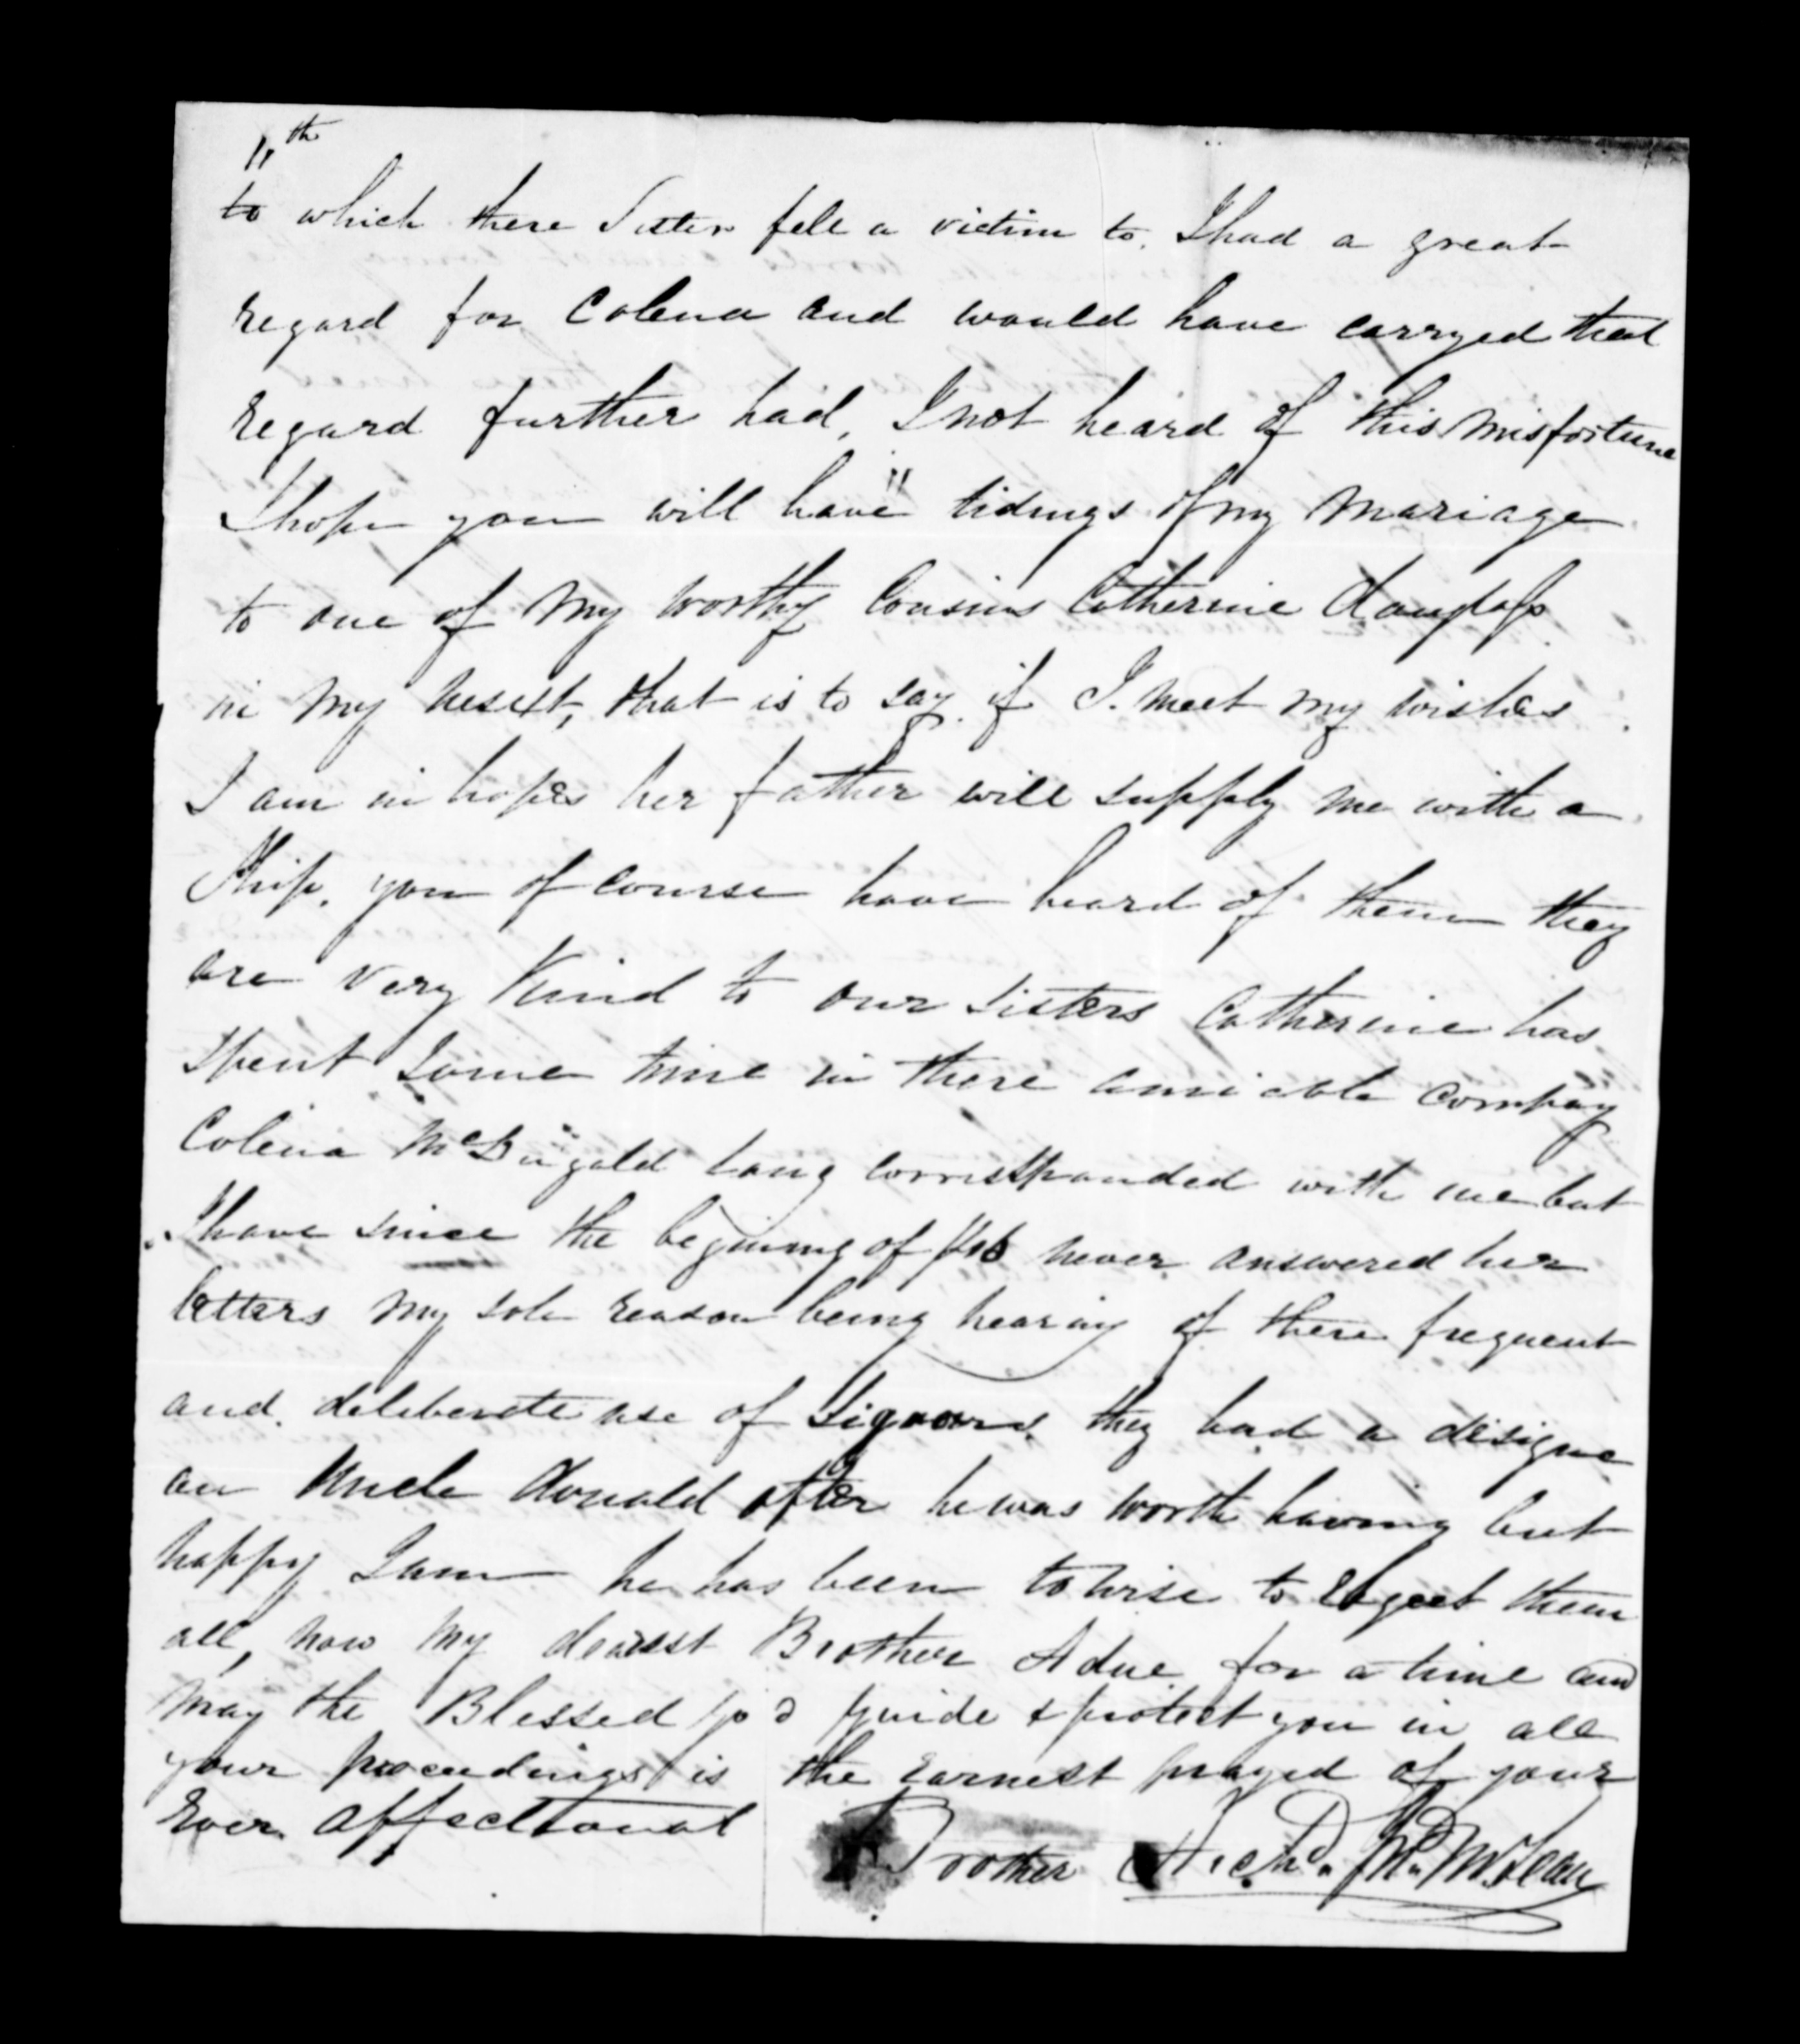 11th
to which there Sister fell a victim to. I had a great
regard for Colena and would have carryed that
regard further had, I not heard of this misfortune
I hope you will have tidings of my mariage
to one of my worthy Cousins Catherine
in my next, that is to say if I meet my wishes
I am in hopes her father will supply me with a
Ship. you of course have heard of them they
are very Kind to our Sisters Catherine has
spent some time in there amicable compay
Colena McDugald long corrisponded with me but
I have since the begining of never answered her
letters my sole reason being hearing of there frequent
and deliberate use of Liquors they had a designe
on Uncle Donald after he was worth having but
happy I am he has been to wise to them
all, now my dearest Brother Adue for a time and
may the Blessed God Guide & protect you in all
your proceedings is the earnest prayed of your
Ever affectional
Brother Archd. Jn. McLean